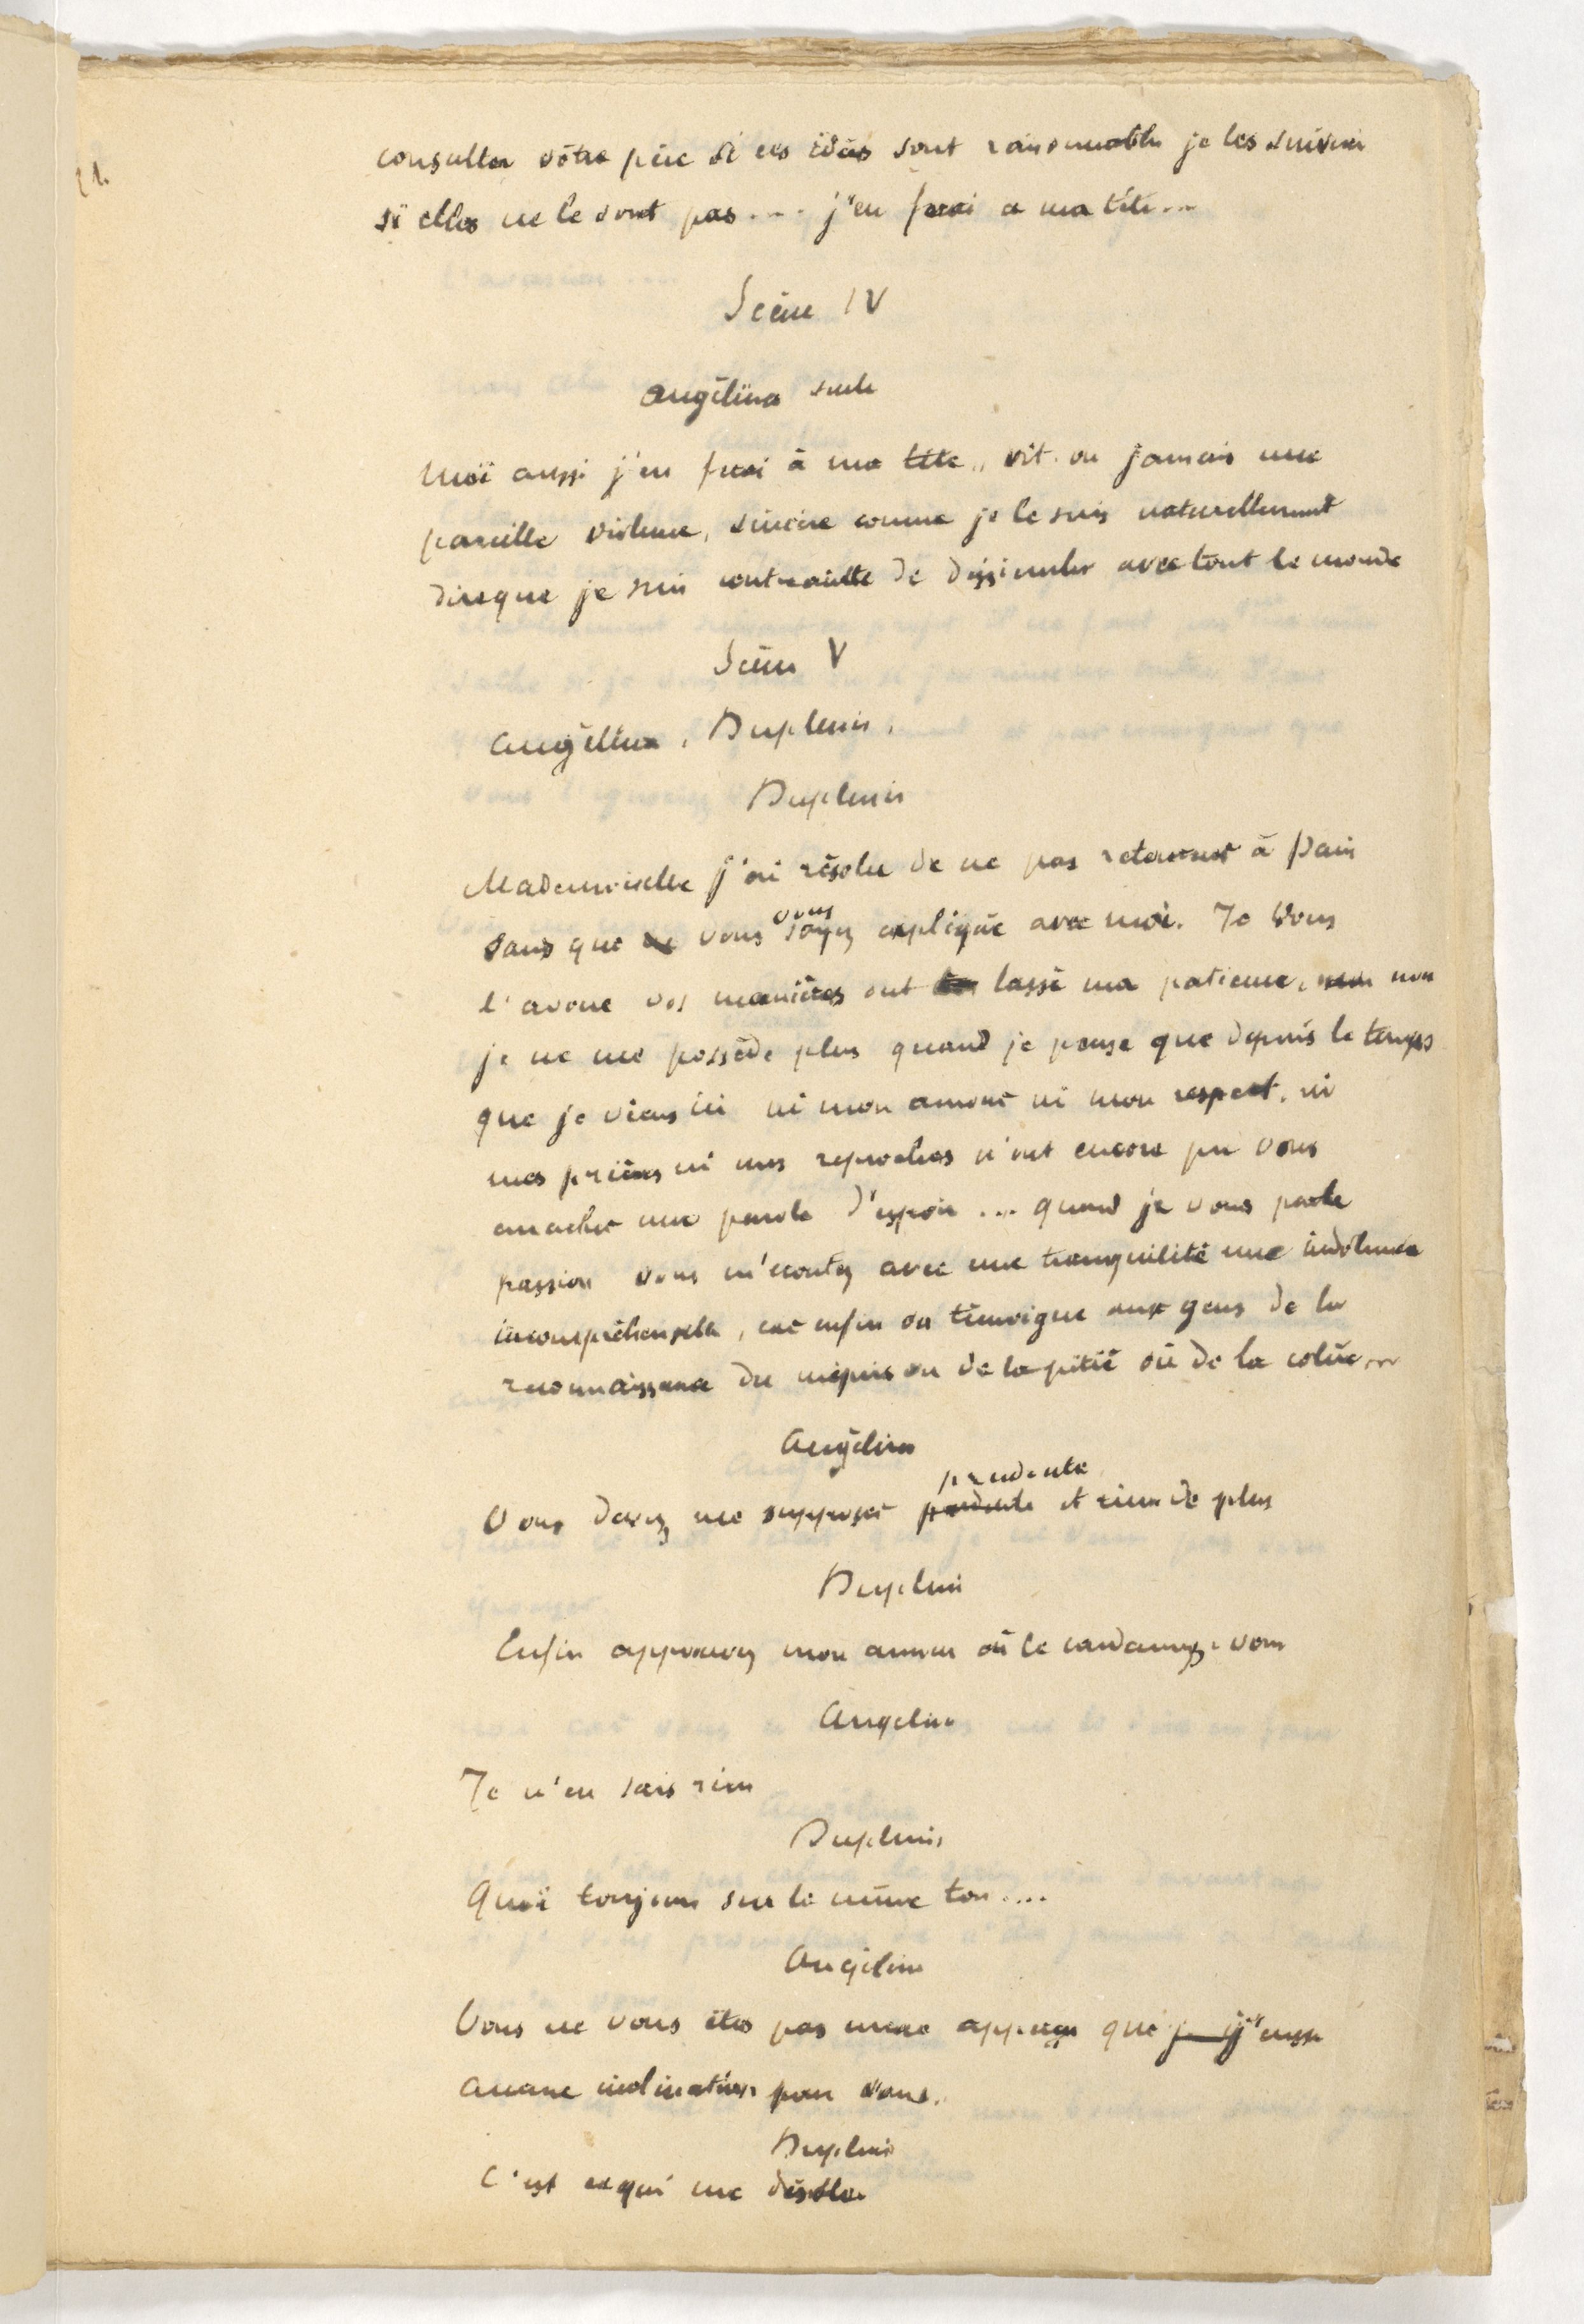 21.
consulter vôtre père si ces idées sont raisonnables je les suivrai
si elles ne le sont pas .... j'en ferai a ma tête...
Scène IV
Angélina seule
Moi aussi j'en ferai à ma tête,, vit-on jamais une
pareille violence, sincère comme je le suis naturellement
dire que je suis contrainte de dissimuler avec tout le monde
Scène V
Angélina, Duplenis,
Duplenis
Mademoiselle j'ai résolu de ne pas retourner à Paris
sans que vous vous soyez expliquée avec moi. Je vous
l'avoue vos manières ont lassé ma patience, non
je ne me possède plus quand je pense que depuis le temps
que je viens ici ni mon amour ni mon respect, ni
mes prières ni mes reproches n'ont encore pu vous
arracher une parole d'espoir ... quand je vous parle
passion vous m'écoutez avec une tranquilité une indolence
incompréhensible, car enfin on témoigne aux gens de la
reconnaissance du mépris ou de la pitié où de la colère...
Angélina
prudente
Vous devez me supposer prudente et rien de plus
Duplenis
Enfin approuvez mon amour où le condamnez-vous
Angelina
Je n'en sais rien
Duplenis
Quoi toujours sur le même ton....
Angélina
Vous ne vous êtes pas encore apperçu que j'eusse
aucune inclination pour vous.
Duplenis
C'est ce qui me désole